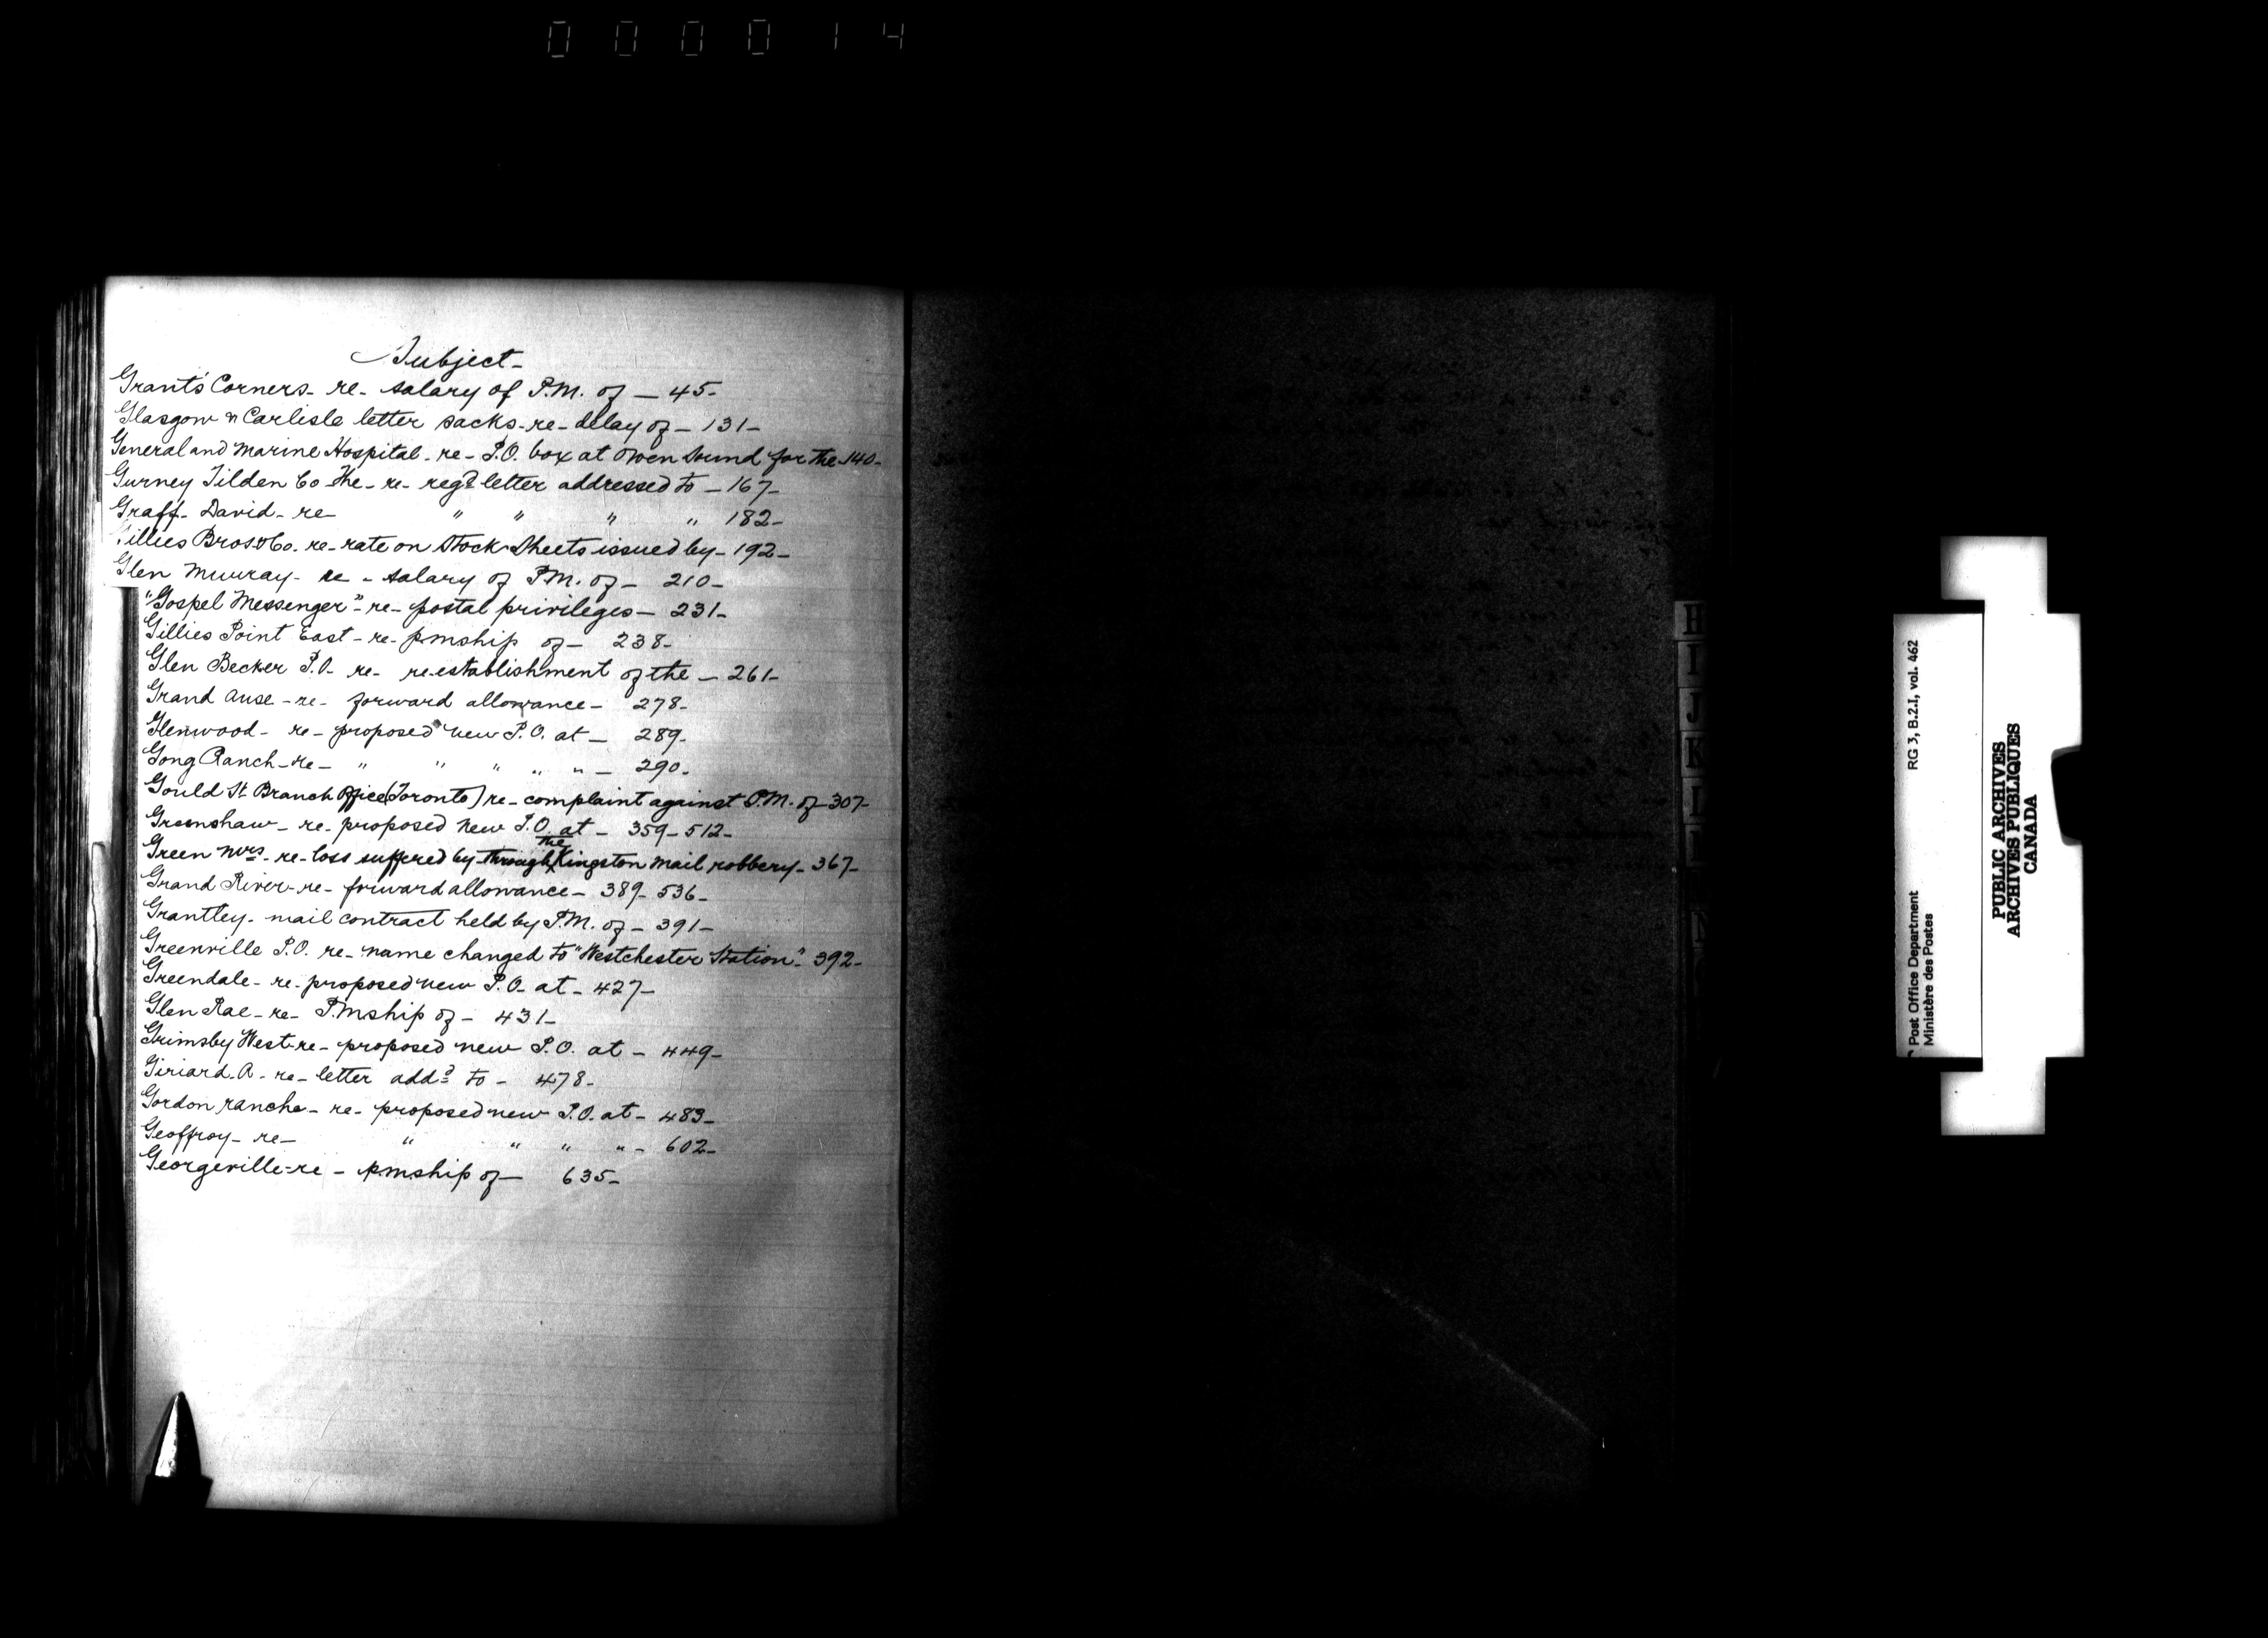 000014
Subject-
Grant's Corners- re- salary of P.M. of - 45-
Glasgow & Carlisle letter sacks- re- delay of - 131-
General and Marine Hospital- re- P.O. box at Owen Sound for the- 140-
Gurney Tilden Co The- re- regd letter addressed to - 167-
Graff- David- re " " " " 182-
Gillies Bros & Co. re- rate on Stock Sheets issued by- 192-
Glen Murray- re - salary of P.M. of - 210-
"Gospel Messenger"- re- postal privileges- 231-
Gillies Point East- re- pmship of - 238-
Glen Becker P.O. re- re-establishment of the - 261-
Grand Anse - re- forward allowance- 278-
Glenwood- re- proposed new P.O. at - 289-
Gong Ranch- re- " " " " " - 290-
Gould St. Branch Office (Toronto) re- complaint against P.M. of- 307-
Greenshaw- re- proposed new P.O. at - 359- 512-
Green Mrs- re- loss suffered by through the Kingston mail robbery- 367-
Grand River- re- forward allowance- 389- 536-
Grantley- mail contract held by P.M. of - 391-
Greenville P.O. re- name changed to "Westchester Station"- 392-
Greendale- re- proposed new P.O. at - 427-
Glen Rae- re- P.mship of - 431-
Grimsby West- re- proposed new P.O. at - 449-
Giriard. A- re- letter addd to - 478-
Gordon ranche- re- proposed new P.O. at - 483-
Geoffroy- re- " " " " - 602-
Georgeville- re - p.m.ship of - 635-
H
I
J
K
L
N
Post Office Department RG 3, B.2.I, vol. 462
Ministère des Postes
PUBLIC ARCHIVES
ARCHIVES PUBLIQUES
CANADA